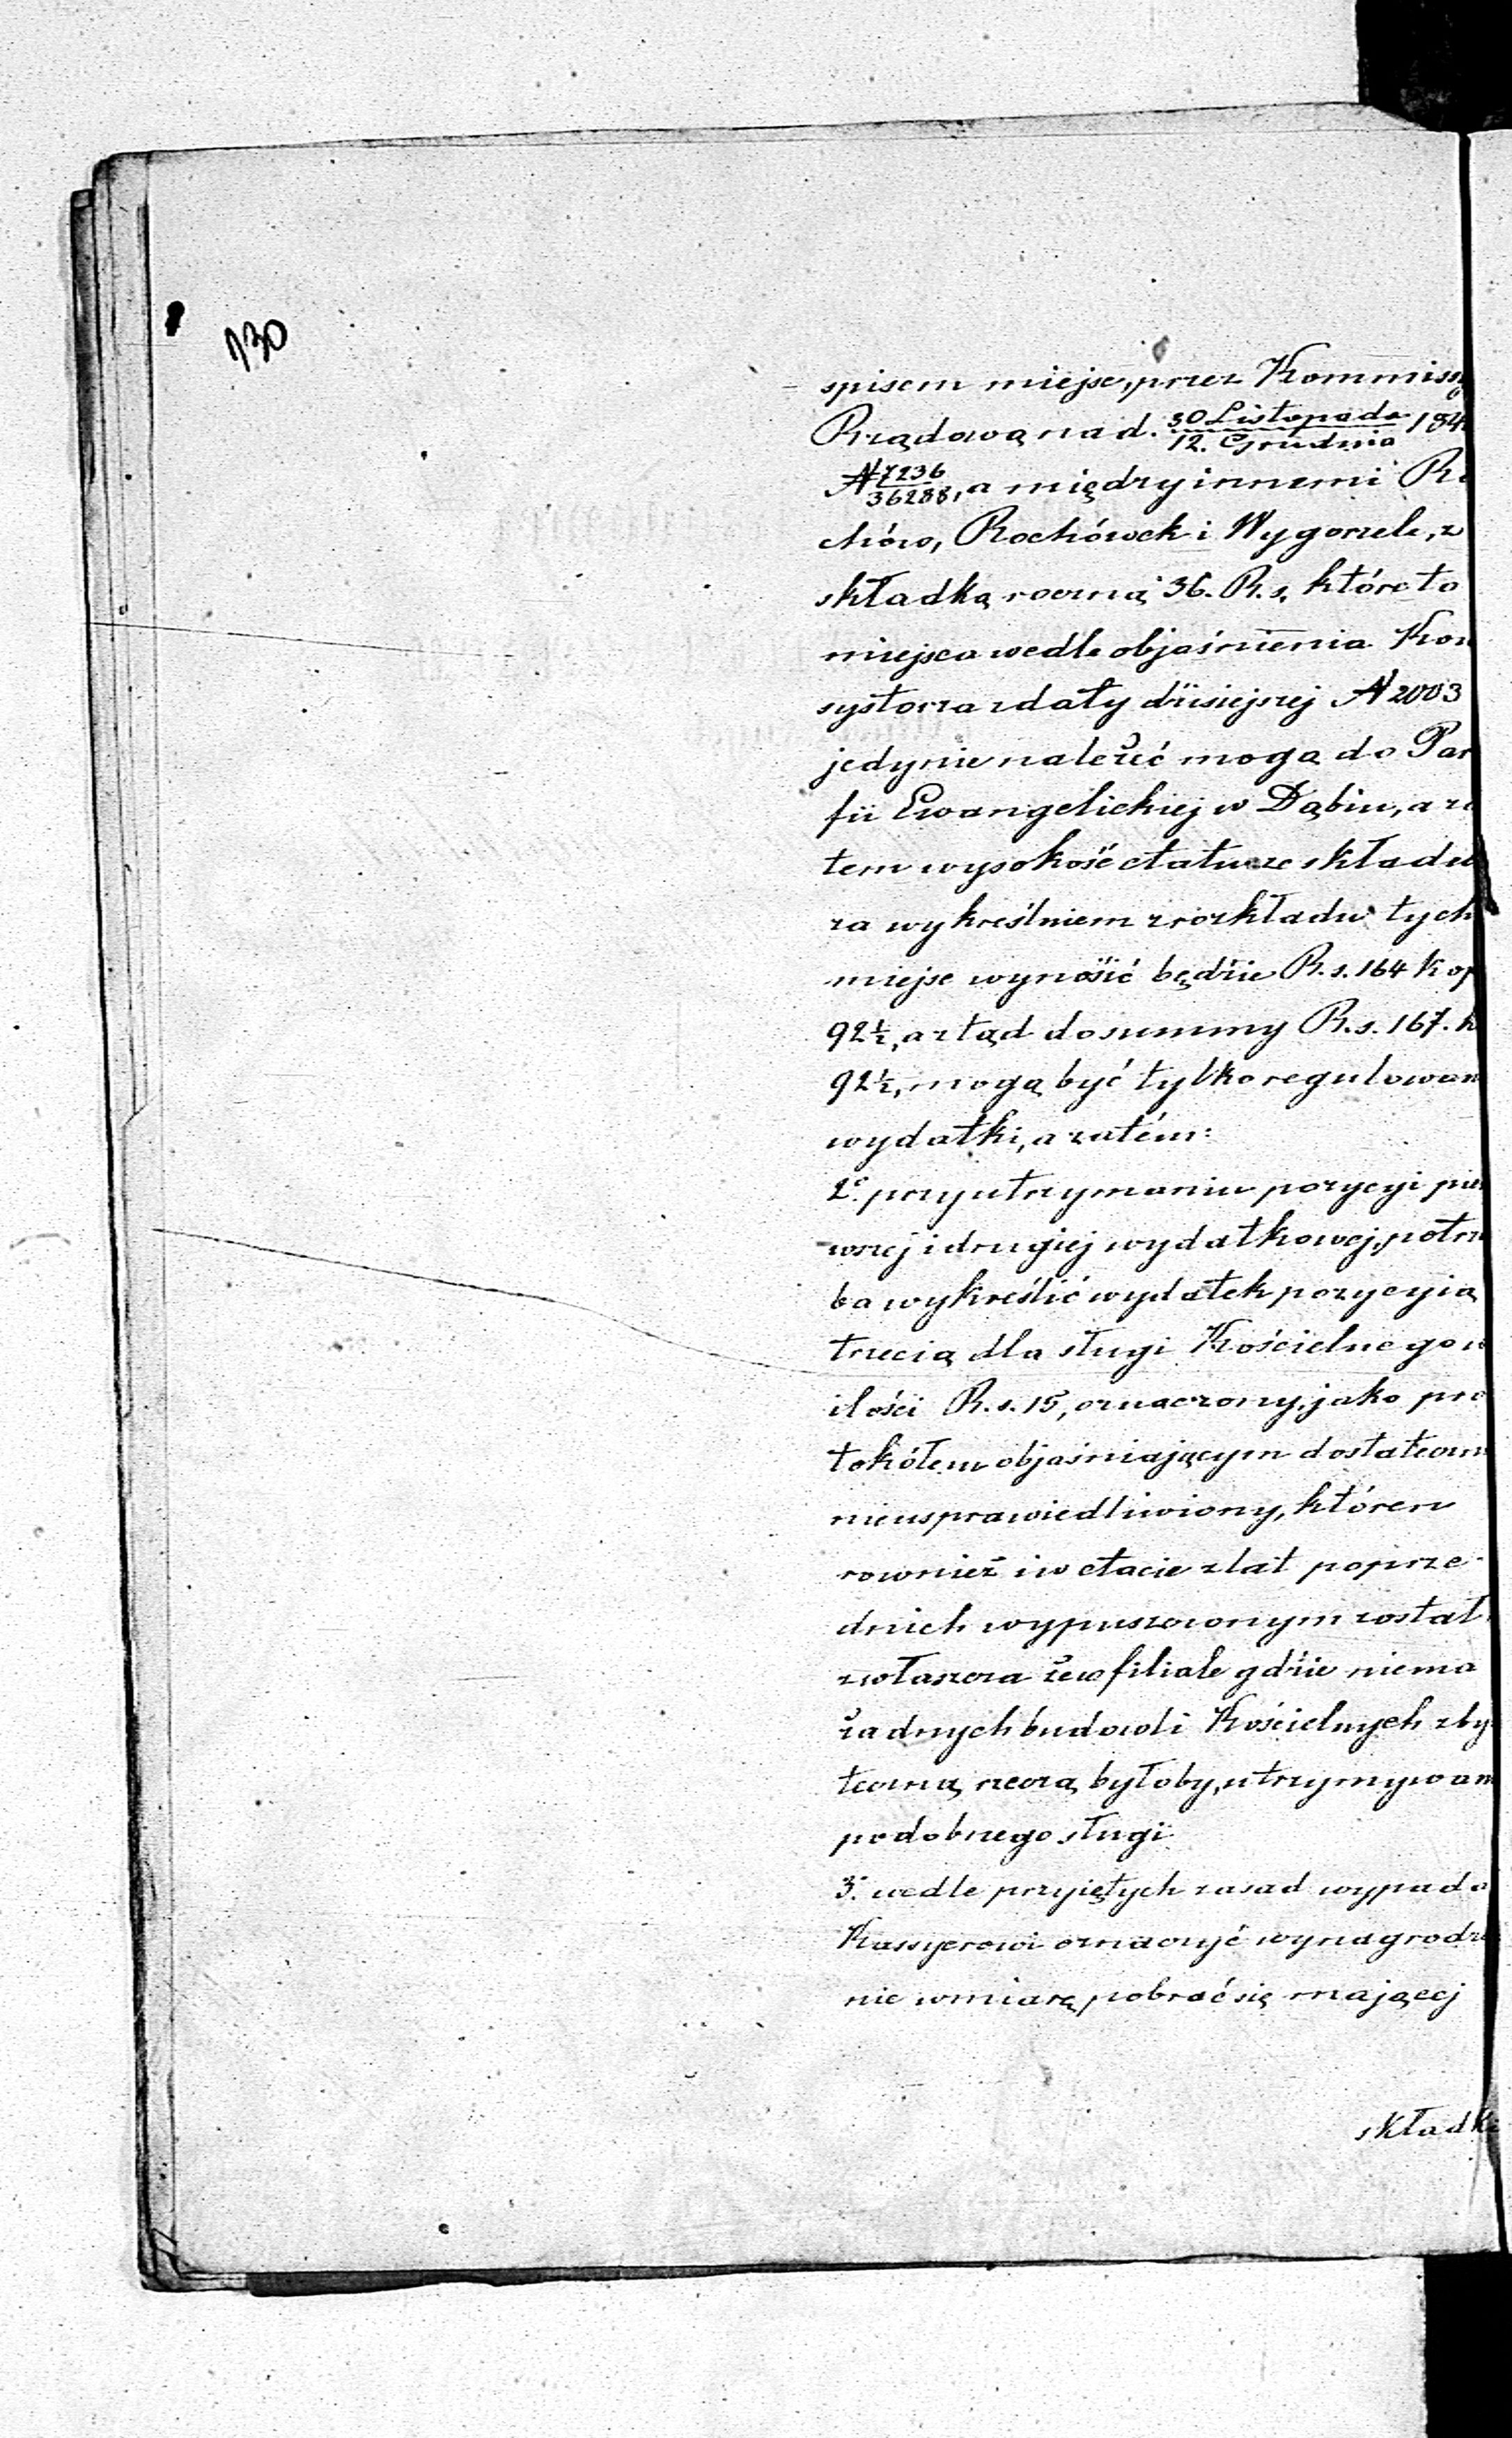 130
spisem miejsc, przez Kommissy
Rządową na d. 30 Listopada / 12. Grudnia 184
N 7236/36288, a między innemi R
chów, Rochówek i Wygorzele, z
składką roczną 36. R. s. któreto
miejsca wedle objaśnienia Kon
systorza z daty dzisiejszej N 2003
jedynie należeć mogą do Par
fii Ewangelickiej w Dąbiu, a za
tem wysokość etatu ze składek
za wykreślniem z rozkładu tych
miejsc wynosić będzie R. s. 164 kop
92½, a ztąd do summy R. s. 167. k
92½, mogą być tylko regulowan
wydatki, a zatém:
2e. przy utrzymaniu pozycyi pier
wszej i drugiej wydatkowej, potrze
ba wykreślić wydatek pozycyią
trzecią dla sługi Kościelnego w
ilości R. s. 15, oznaczony, jako pro
tokółem objaśniającym dostateczn
nieusprawiedliwiony, któren
rownież i w etacie z lat poprze-
dnich wypuszczonym został
zwłaszcza że w filiale gdzie niema
żadnych budowli Kościelnych zby
teczną rzeczą byłoby, utrzymywan
podobnego sługi
3. wedle przyiętych zasad wypada
Kassyerowi oznaczyć wynagrodze
nie w miarę pobrać się mającej
składki